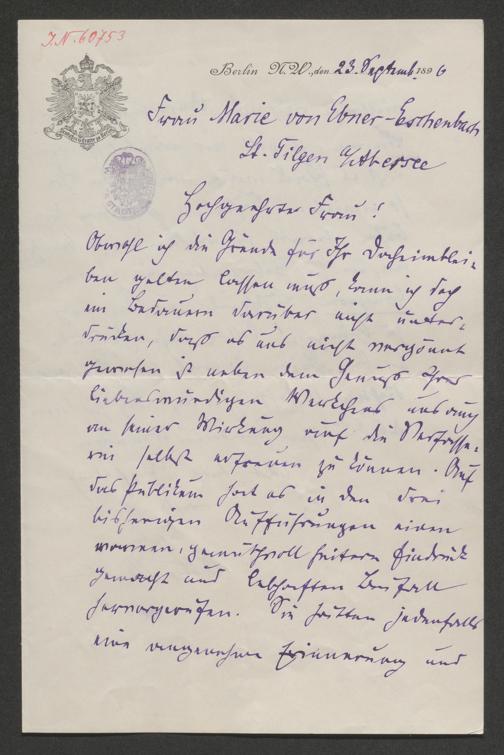 J.N. 60753
Berlin N.W., den 23. Septemb. 1896
Frau Marie von Ebner-Eschenbach
St. Gilgen a/Abersee
Hochgeehrte Frau!
Obwohl ich die Gründe für Ihr Daheimblei-
ben gelten lassen muß, kann ich doch
ein Bedauern darüber nicht unter-
drücken, daß es uns nicht vergönnt
gewesen ist neben dem Genuß Ihres
liebenswürdigen Werkchens uns auch
an seiner Wirkung auf die Verfasse-
rin selbst erfreuen zu können. Auf
das Publikum hat es in den drei
bisherigen Aufführungen einen
warmen, gemüthvoll heitern Eindruck
gemacht und lebhaften Beifall
hervorgerufen. Sie hätten jedenfalls
eine angenehme Erinnerung und